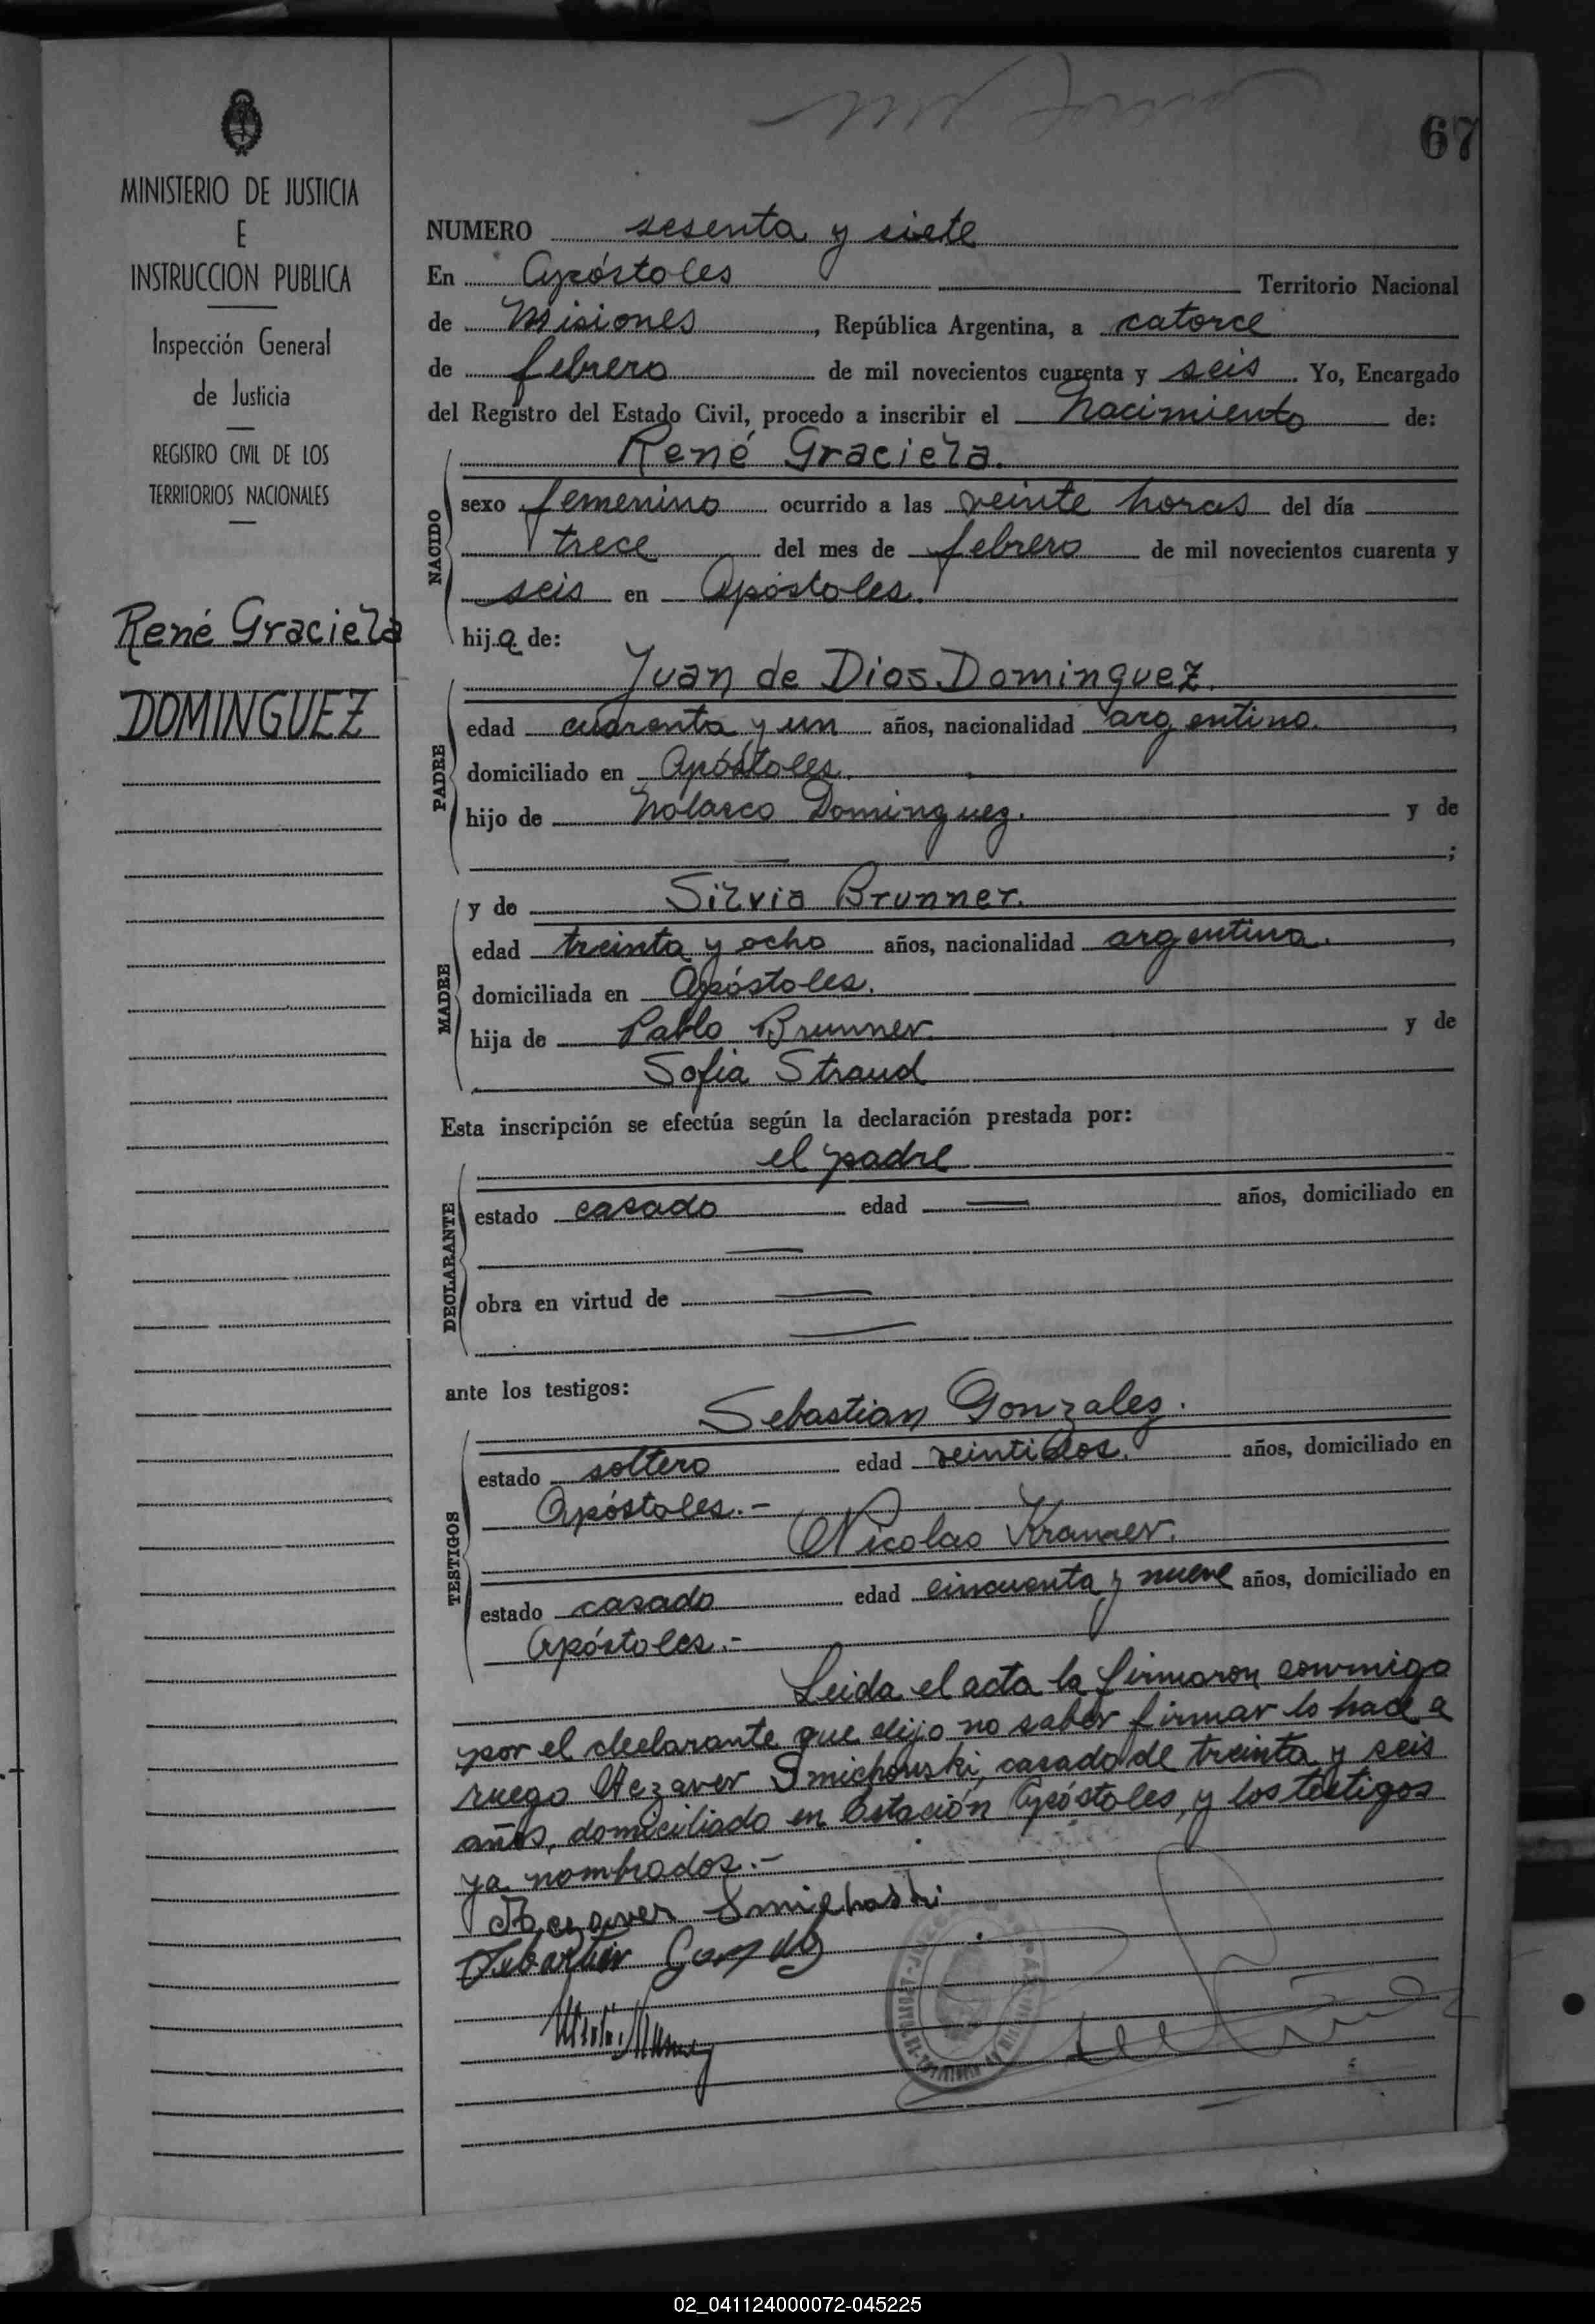 67
MINISTERIO DE JUSTICIA
E
INSTRUCCION PUBLICA
Inspección General
de Justicia
REGISTRO CIVIL DE LOS
TERRITORIOS NACIONALES
René Graciela
DOMINGUEZ
NUMERO sesenta y siete
En Apóstoles Territorio Nacional
de Misiones, República Argentina, a catorce
de febrero de mil novecientos cuarenta y seis. Yo, Encargado
del Registro del Estado Civil, procedo a inscribir el nacimiento de:
NACIDO
René Graciela.
sexo femenino ocurrido a las veinte horas del día
trece del mes de febrero de mil novecientos cuarenta y
seis en Apóstoles.
hija de:
PADRE
Juan de Dios Dominguez.
edad cuarenta y un años, nacionalidad argentino.,
domiciliado en Apóstoles.
hijo de Nolasco Dominguez. y de
— ;
MADRE
y de Silvia Brunner.
edad treinta y ocho años, nacionalidad argentina.,
domiciliada en Apóstoles.
hija de Pablo Brunner. y de
Sofia Straud
Esta inscripción se efectúa según la declaración prestada por:
DECLARANTE
el padre
estado casado edad — años, domiciliado en
—
obra en virtud de —
—
ante los testigos:
TESTIGOS
Sebastian Gonzalez.
estado soltero edad veintidos. años, domiciliado en
Apóstoles.-
Nicolas Kramer.
estado casado edad cincuenta y nueve años, domiciliado en
Apóstoles.-
Leida el acta la firmaron conmigo
por el declarante que dijo no saber firmar lo hace a
ruego Smichouski, casado de treinta y seis
años, domiciliado en Estación Apóstoles, y los testigos
ya nombrados.-
02_041124000072-045225